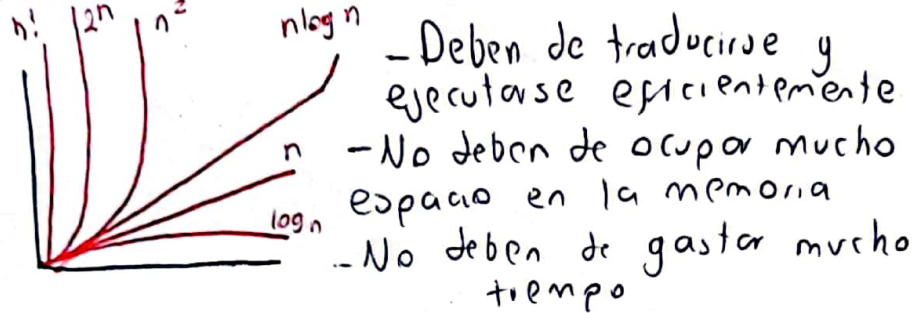 n!
2ⁿ
n²
nlog n
n
log n
- Deben de traducirse y
ejecutarse eficientemente
- No deben de ocupar mucho
espacio en la memoria
- No deben de gastar mucho
tiempo